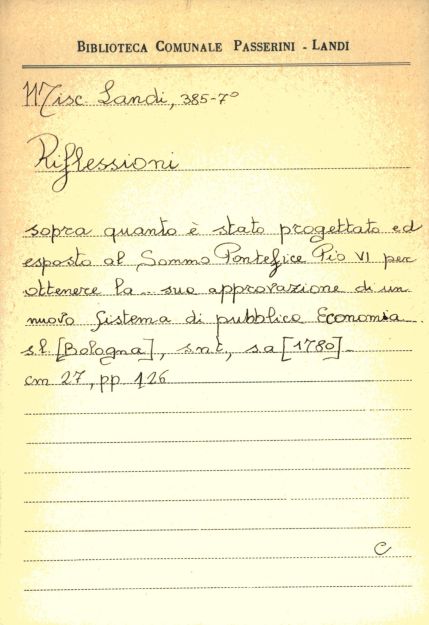 BIBLIOTECA COMUNALE PASSERINI - LANDI
Misc Landi, 385-7°
Riflessioni
sopra quanto è stato progettato ed
esposto al Sommo Pontefice Pio VI per
ottenere la sua approvazione di un
nuovo sistema di pubblica Economia
s.l [Bologna], s.n.t, s.a [1780]
cm 27, pp 126
C